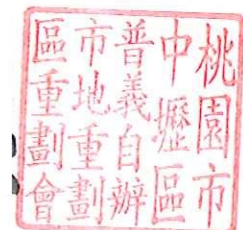 桃園市
中壢區
普義自辦
市地重劃
區重劃會